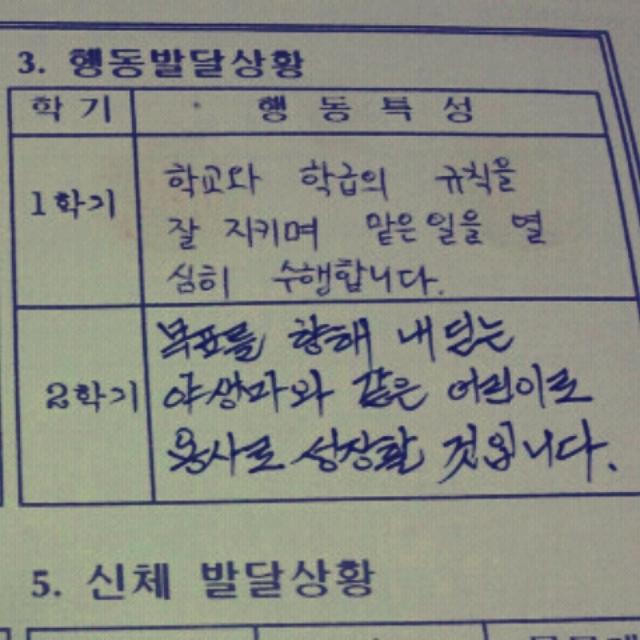 3. 행동발달상황
학기 행동특성
1학기
학교와 학급의 규칙을
잘 지키며 맡은 일을 열
심히 수행합니다.
2학기
목표를 향해 내딛는
야생마와 같은 어린이로
용사로 성장할 것입니다.
5. 신체 발달상황